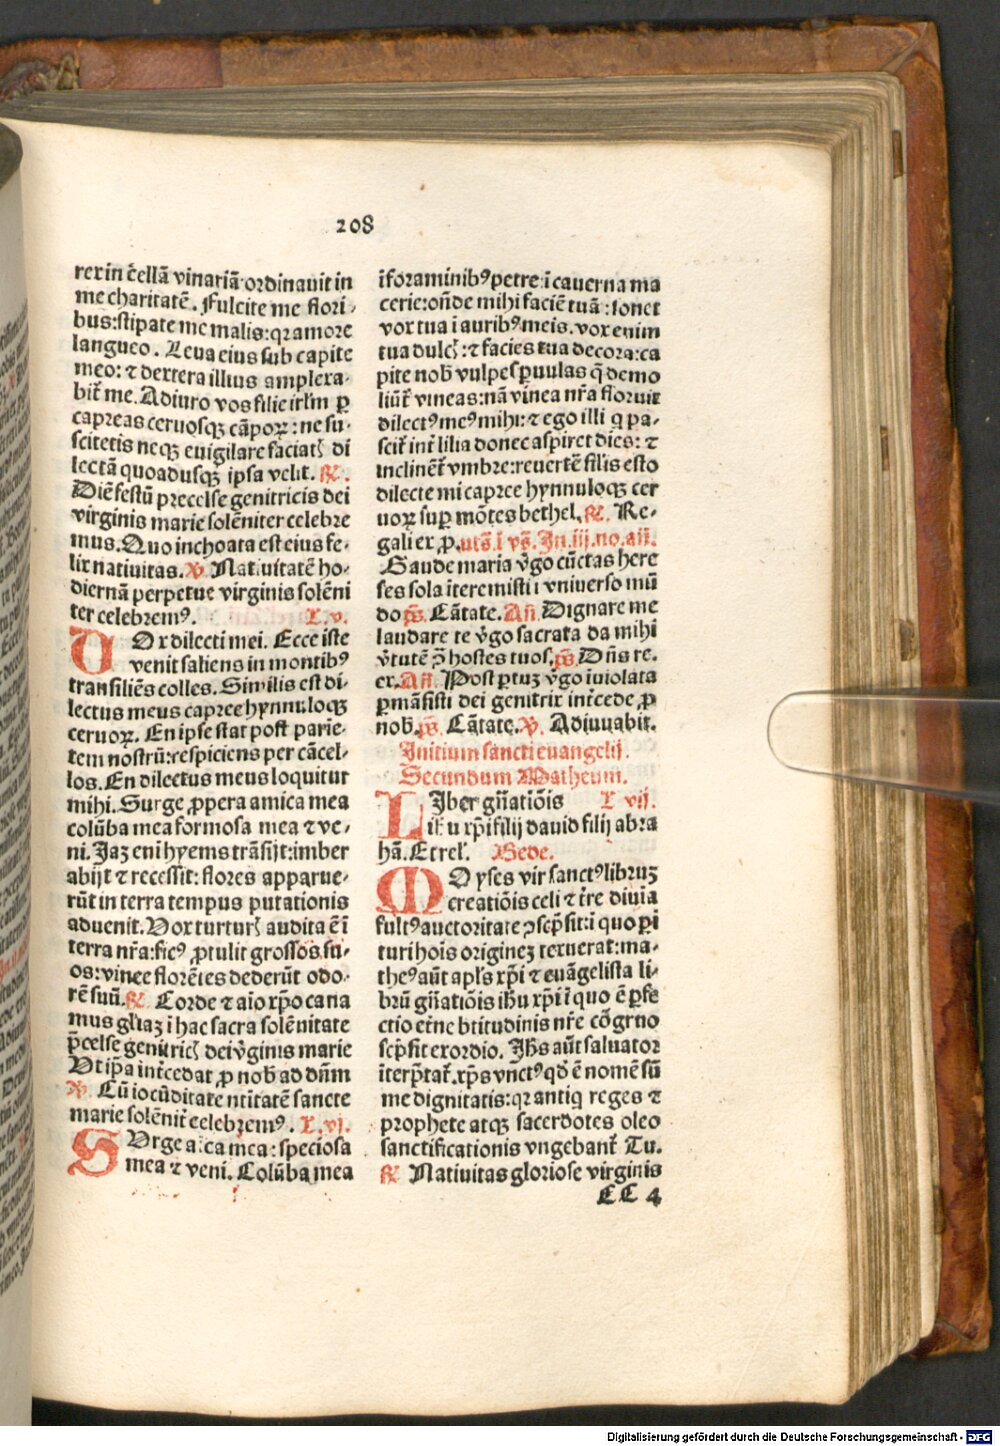 208
rex in cellā vinariā ordinauit in
me charitatē. Fulcite me flori-
bus: stipate me malis: qꝛ amore
langueo. Leua eius sub capite
meo: ⁊ dextera illius amplexa-
bit̄ me. Adiuro vos filie irl̄m ꝑ
capreas ceruosqꝫ cāpoꝝ: ne su-
scitetis neqꝫ euigilare faciatꝭ di
lectā quoadusqꝫ ipsa velit. ℟.
Diē festū precelse genitricis dei
virginis marie solēniter celebre
mus. Quo inchoata est eius fe-
lix natiuitas. ℣. Natiuitatē ho-
diernā perpetue virginis solēni
ter celebremꝰ. L. v.
VOx dilecti mei. Ecce iste
venit saliens in montibꝰ
transiliēs colles. Similis est di-
lectus meus capree hynnuloqꝫ
ceruoꝝ. En ipse stat post parie-
tem nostrū: respiciens per cācel-
los. En dilectus meus loquitur
mihi. Surge ꝓpera amica mea
colūba mea formosa mea ⁊ ve-
ni. Jaꝫ eni hyems trāsijt: imber
abijt ⁊ recessit: flores apparue-
rūt in terra tempus putationis
aduenit. Vox turturꝭ audita ē ī
terra nr̄a: ficꝰ ꝓtulit grossos su-
os: vinee florētes dederūt odo-
rē suū. ℟. Corde ⁊ aīo xp̄o cana
mus gl̄iaꝫ ī hac sacra solēnitate
p̄celse genitricꝭ dei v̄ginis marie
Vt ip̄a int̄cedat ꝓ nob̄ ad dn̄m
℣. Cū iocūditate nt̄itatē sancte
marie solēnit̄ celebremꝰ. L. vj.
SVrge a.ca mea: speciosa
mea ⁊ veni. Colūba mea
ī foraminibꝰ petre: ī cauerna ma
cerie: on̄de mihi faciē tuā: sonet
vox tua ī auribꝰ meis. vox enim
tua dulcꝭ: ⁊ facies tua decora: ca
pite nob̄ vulpes ꝑuulas q̄ demo
liūt̄ vineas: nā vinea nr̄a floruit
dilectꝰ meꝰ mihi: ⁊ ego illi q pa-
scit̄ int̄ lilia donec aspiret dies: ⁊
inclinēt̄ vmbre: reuertē filis esto
dilecte mi capree hynnuloqꝫ cer
uoꝝ suꝑ mōtes bethel. ℟. Re-
gali ex ꝓ. vts̄. l vs̄. In. iij. no. añ.
Gaude maria v̄go cūctas here
ses sola īteremisti ī vniuerso mū
do ps̄. Cātate. Añ. Dignare me
laudare te v̄go sacrata da mihi
v̄tutē p̄ hostes tuos. ps̄. Dn̄s re.
ex. Añ. Post ꝑtuꝫ v̄go īuiolata
ꝑmāsisti dei genitrix int̄cede ꝓ
nob̄. ps̄. Cātate. ℣. Adiuuabit.
Initium sancti euangelij.
Secundum Matheum.
LIber gn̄atiōis L vij.
ih̄u xp̄i filij dauid filij abra
hā. Et rel̄. Bede.
MOyses vir sanctꝰ libruꝫ
creatiōis celi ⁊ t̄re diuīa
fultꝰ auctoritate ꝯscp̄sit: ī quo ꝑi
turi hoīs origineꝫ texuerat: ma-
theꝰ aūt apl̄s xp̄i ⁊ euāgelista li-
brū gn̄atiōis ih̄u xp̄i ī quo ē ꝑfe
ctio et̄ne btitudinis nr̄e cōgrno
scp̄sit exordio. Jh̄s aūt saluator
īterp̄tat̄. xp̄s vnctꝰ qd̄ ē nomē sū
me dignitatis: qꝛ antiq reges ⁊
prophete atqꝫ sacerdotes oleo
sanctificationis vngebant̄ Tu.
℟. Natiuitas gloriose virginis
CC 4
Digitalisierung gefördert durch die Deutsche Forschungsgemeinschaft - DFG